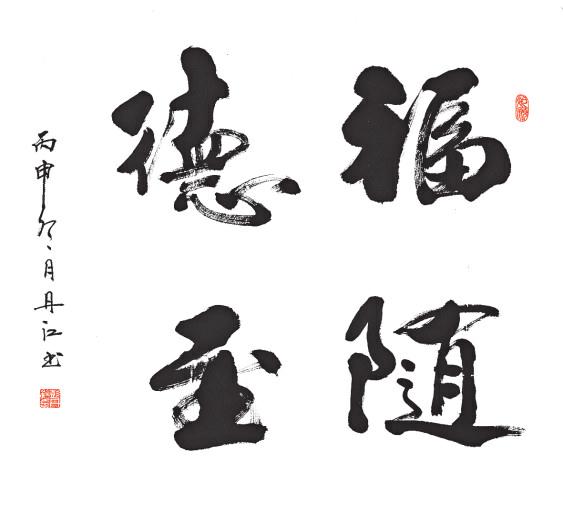 福随
德至
丙申冬月丹江书